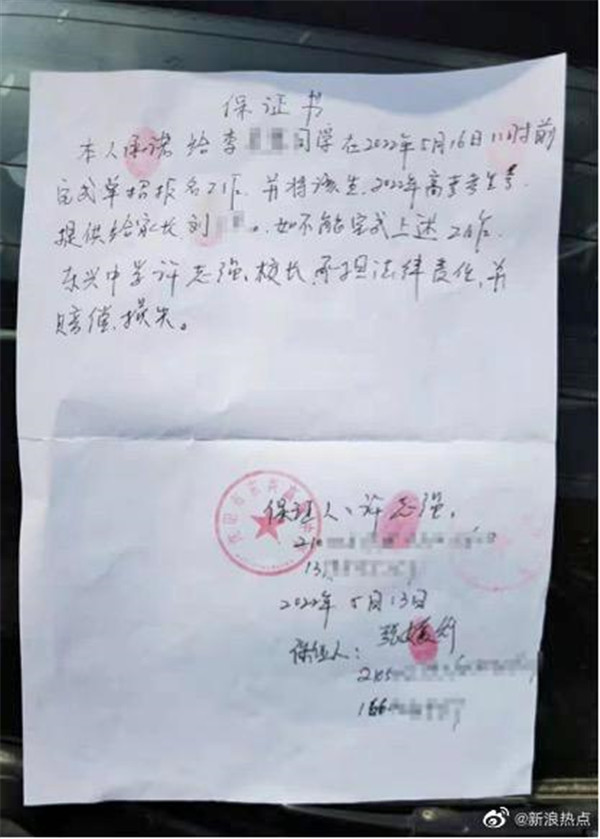 保证书
本人承诺给李 同学在2022年5月16日11时前
完成单招报名工作，并将该生2022年高考考生号
提供给家长刘 。如不能完成上述工作。
东兴中学许志强校长承担法律责任，并
赔偿损失。
保证人：许志强。
210
13
2022年5月13日
保证人：张
210
166
@新浪热点